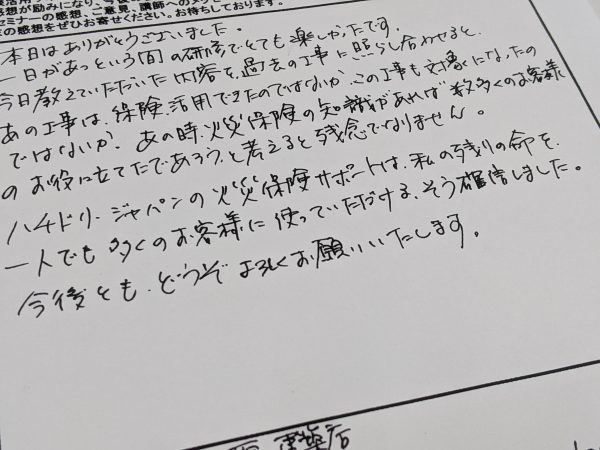 感想が励みになり、今後
セミナーの感想、ご意見、講師へのメッ
の感想をぜひお寄せください。お待ちしております。
本日はありがとうございました。
一日があっという間の研修でとても楽しかったです。
今日教えていただいた内容を、過去の工事に照らし合わせると、
あの工事は、保険活用できたのではないか、この工事も対象になったの
ではないか、あの時、火災保険の知識があれば数多くのお客様
のお役に立てたであろう、と考えると残念でなりません。
ハチドリ・ジャパンの火災保険サポートは、私の残りの命を、
一人でも多くのお客様に使っていただける、そう確信しました。
今後とも、どうぞよろしくお願いいたします。
店